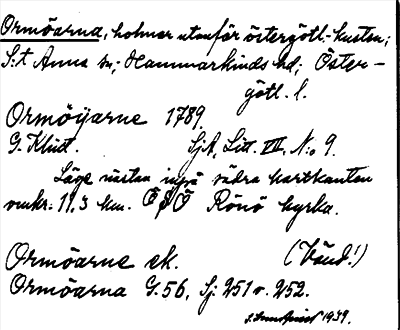 Ormöarna, holmar utanför östergötl.-kusten;
S:t Anna sn; Hammarkinds hd; Öster-
götl. l.
Ormöÿarne 1789.
G. Klint. SjA, Litt. VII, N:o 9.
Läge nästan invid södra kartkanten
omkr. 11.3 km. ÖSÖ Rönö kyrka.
(Vänd!)
Ormöarne ek.
Ormöarna G.56, Sj. 251 o. 252.
1939.